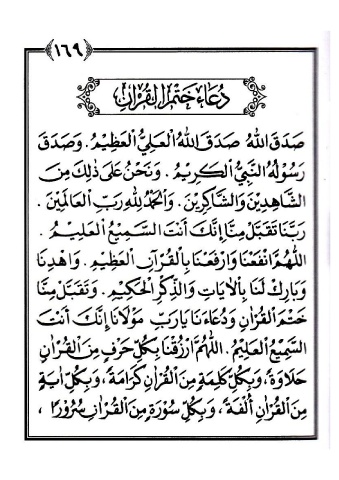 ١٦٩
دُعَاءُ خَتْمِ الْقُرْآنِ
صَدَقَ اللّٰهُ صَدَقَ اللّٰهُ الْعَلِيُّ الْعَظِيْمُ . وَصَدَقَ
رَسُوْلُهُ النَّبِيُّ الْكَرِيْمُ . وَنَحْنُ عَلَى ذٰلِكَ مِنَ
الشَّاهِدِيْنَ وَالشَّاكِرِيْنَ . وَالْحَمْدُ لِلّٰهِ رَبِّ الْعَالَمِيْنَ .
رَبَّنَا تَقَبَّلْ مِنَّا إِنَّكَ أَنْتَ السَّمِيْعُ الْعَلِيْمُ .
اَللّٰهُمَّ انْفَعْنَا وَارْفَعْنَا بِالْقُرْآنِ الْعَظِيْمِ . وَاهْدِنَا
وَبَارِكْ لَنَا بِالْاٰيَاتِ وَالذِّكْرِ الْحَكِيْمِ . وَتَقَبَّلْ مِنَّا
خَتْمَ الْقُرْاٰنِ وَدُعَاءَنَا يَارَبَّ مَوْلَانَا إِنَّكَ أَنْتَ
السَّمِيْعُ الْعَلِيْمُ . اَللّٰهُمَّ ارْزُقْنَا بِكُلِّ حَرْفٍ مِنَ الْقُرْاٰنِ
حَلَاوَةً، وَبِكُلِّ كَلِمَةٍ مِنَ الْقُرْاٰنِ كَرَامَةً، وَبِكُلِّ اٰيَةٍ
مِنَ الْقُرْاٰنِ أُلْفَةً، وَبِكُلِّ سُوْرَةٍ مِنَ الْقُرْاٰنِ سُرُوْرًا ،